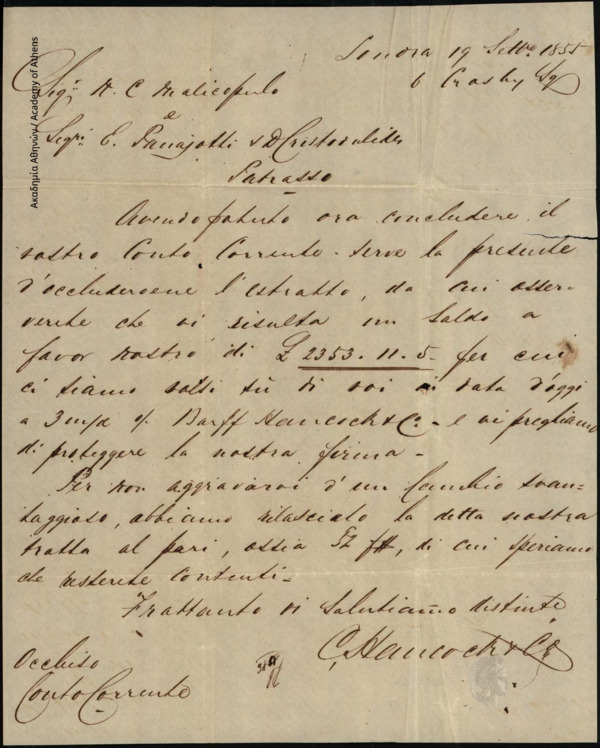 Londra 19 Settbre 1855
6 Crosby Sq
Sigr N. C. Malicopulo
e
Sigri E. Panajotti & D Cristodulides
Patrasso
Avendo potuto ora concludere il
vostro Conto Corrente - serve la presente
d'occludervene l'estratto, da cui osser-
verete che vi risulta un Saldo a
favor nostro di £ 2353.11.5 - per cui
ci siamo valsi sù di voi in data d'oggi
a 3 m/d o/. Barff Hancock & Co. - e vi preghiamo
di proteggere la nostra firma -
Per non aggravarvi d'un Cambio svan-
taggioso, abbiamo rilasciato la detta nostra
tratta al pari, ossia di cui speriamo
che resterete contenti -
Frattanto vi Salutiamo distinte
C, Hancock & Co
Occhiso
Conto Corrente
Ακαδημία Αθηνών / Academy of Athens